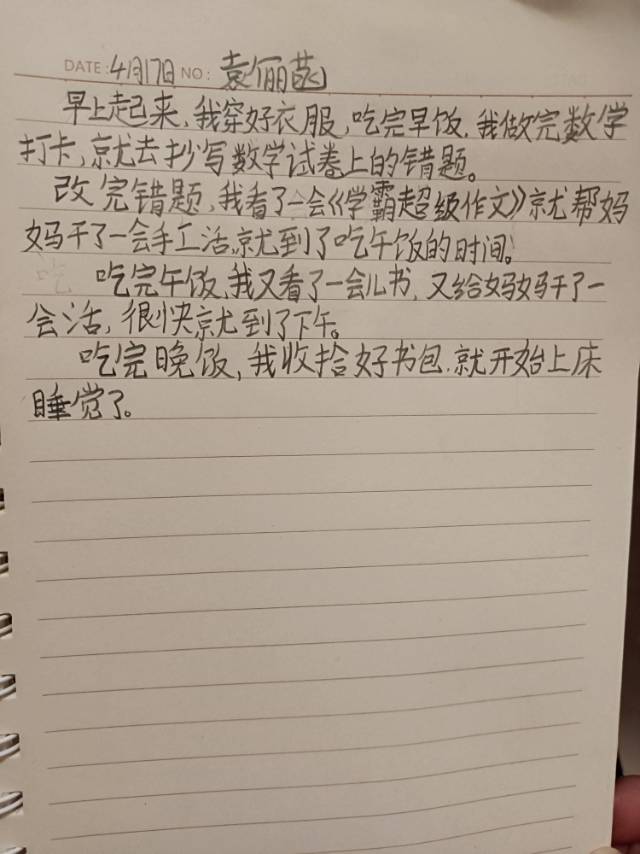 DATE: 4月17日 NO: 袁俪菡
早上起来,我穿好衣服,吃完早饭,我做完数学
打卡,就去抄写数学试卷上的错题。
改完错题,我看了一会《学霸超级作文》就帮妈
妈干了一会手工活,就到了吃午饭的时间。
吃完午饭,我又看了一会儿书,又给妈妈干了一
会活,很快就到了下午。
吃完晚饭,我收拾好书包,就开始上床
睡觉了。